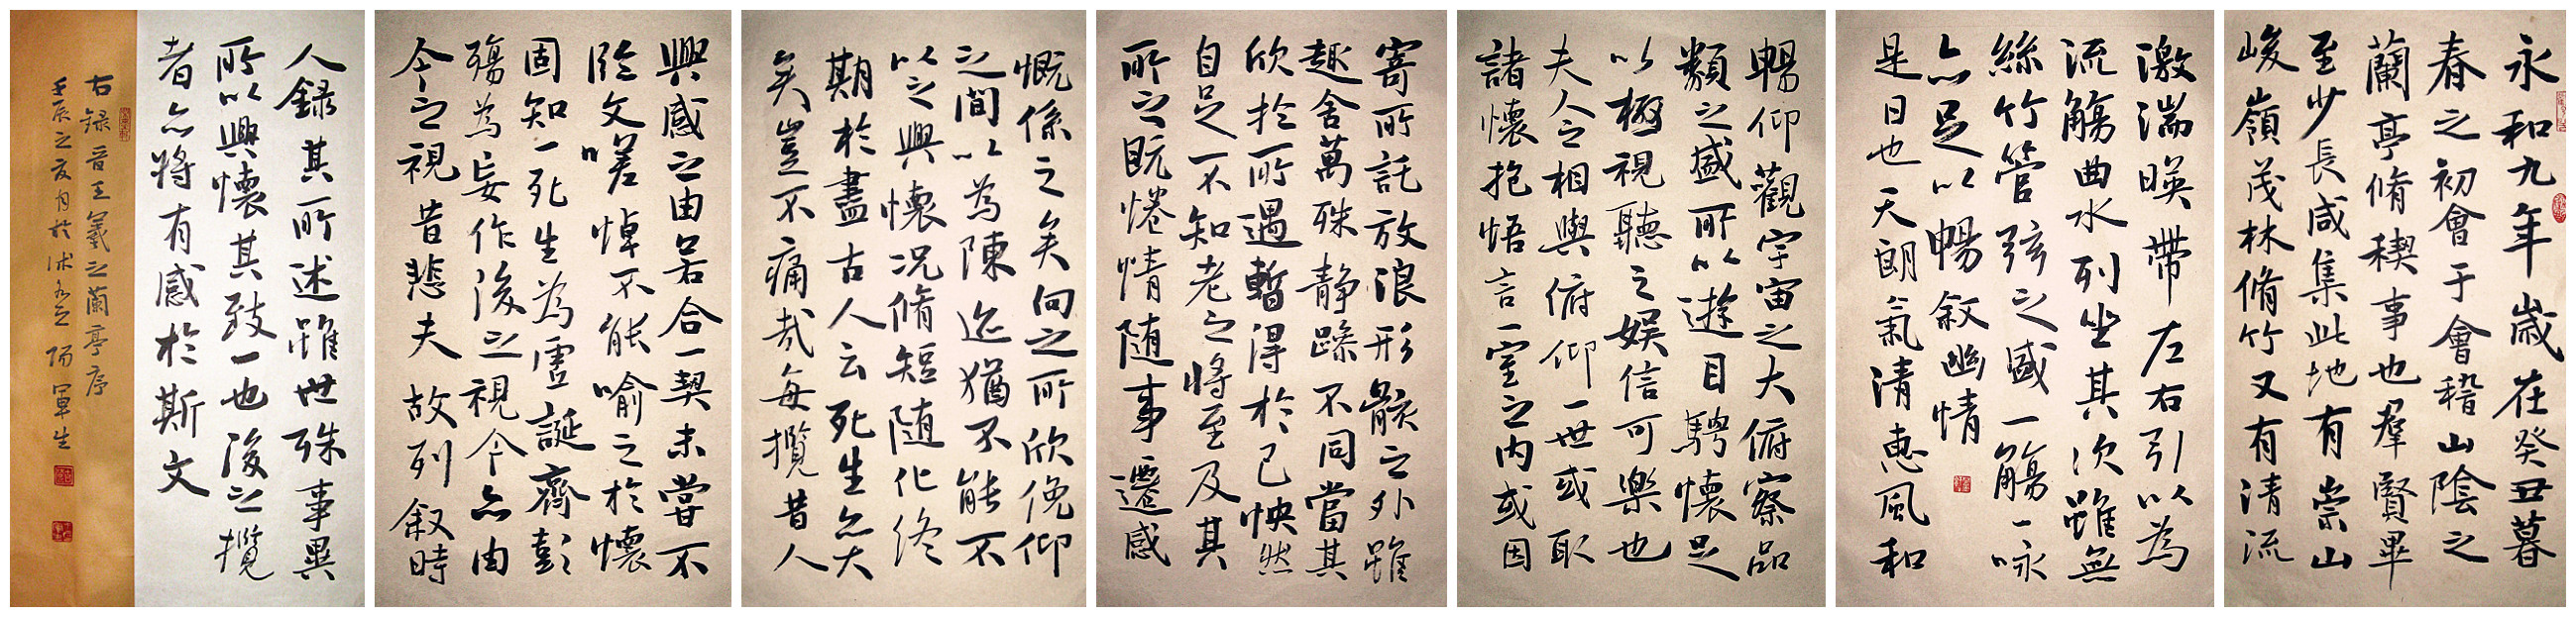 永和九年歲在癸丑暮
春之初會于會稽山陰之
蘭亭脩稧事也羣賢畢
至少長咸集此地有崇山
峻嶺茂林脩竹又有清流
激湍暎帶左右引以為
流觴曲水列坐其次雖無
絲竹管弦之盛一觴一咏
亦足以暢叙幽情
是日也天朗氣清惠風和
暢仰觀宇宙之大俯察品
類之盛所以遊目騁懷足
以極視聽之娛信可樂也
夫人之相與俯仰一世或取
諸懷抱悟言一室之内或因
寄所託放浪形骸之外雖
趣舍萬殊静躁不同當其
欣於所遇暫得於己怏然
自足不知老之將至及其
所之既惓情随事遷感
慨係之矣向之所欣俛仰
之間以為陳迹猶不能不
以之興懷况脩短随化終
期於盡古人云死生亦大
矣豈不痛哉每攬昔人
興感之由若合一契未嘗不
臨文嗟悼不能喻之於懷
固知一死生為虛誕齊彭
殤為妄作後之視今亦由
今之視昔悲夫故列叙時
人録其所述雖世殊事異
所以興懷其致一也後之攬
者亦將有感於斯文
右録晋王羲之蘭亭序
壬辰之夏月於沭 軍生